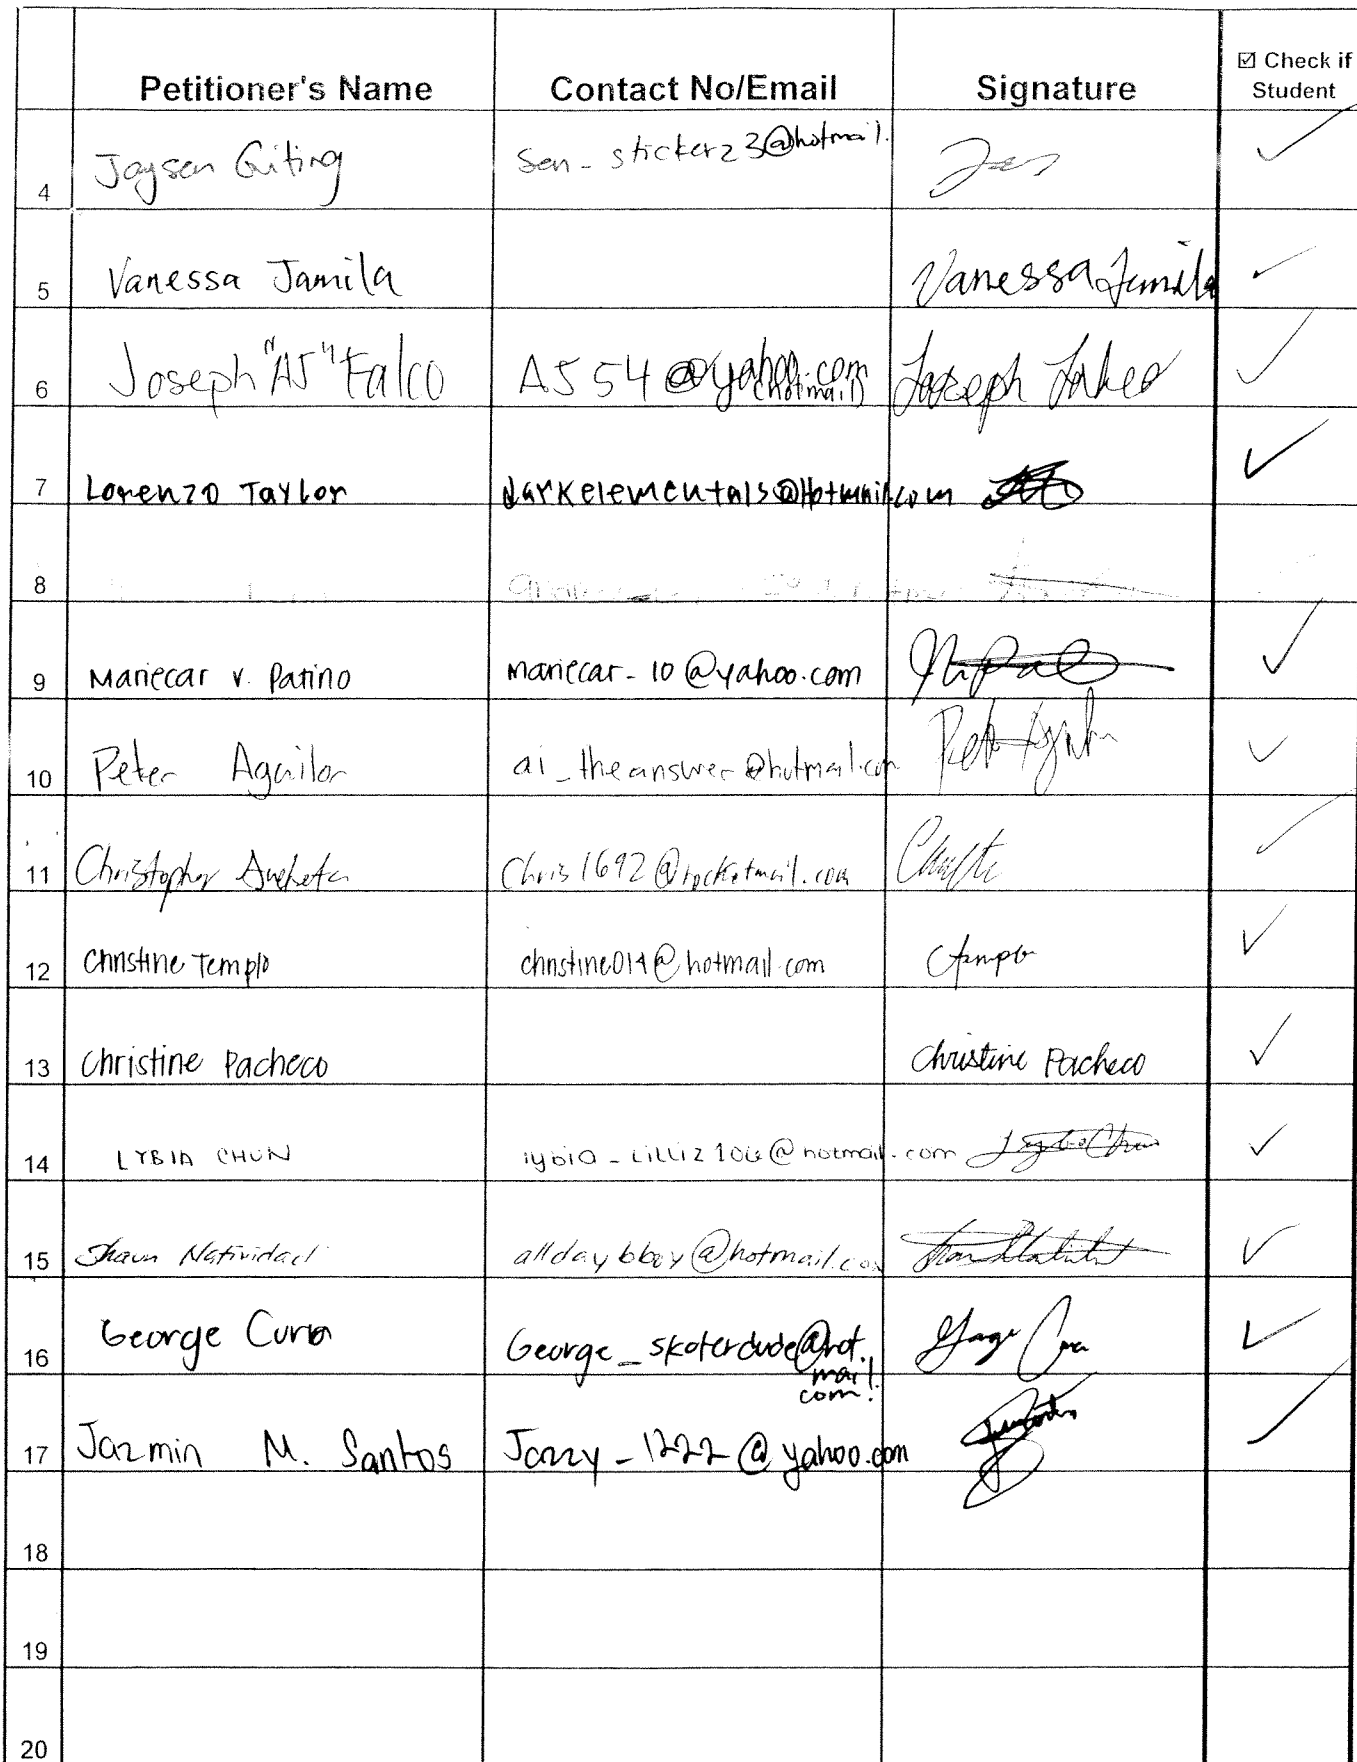 Petitioner's Name Contact No/Email Signature ☑ Check if Student
4 Jaysen Giting sen_stickerz3@hotmail.
5 Vanessa Jamila Vanessa Jamila
6 Joseph "AJ" Falco AJ54@yahoo.com (hotmail) Joseph Falco
7 Lorenzo Taylor darkelementals@Hotmail.com
8
9 Mariecar V. Patino mariecar_10@yahoo.com
10 Peter Aguilar ai_theanswer@hotmail.com
11 Christopher Chris1692@rocketmail.com
12 Christine Templo christine014@hotmail.com
13 Christine Pacheco Christine Pacheco
14 LYBIA CHUN lybia_Lilliz106@hotmail.com Lybia Chun
15 Shaun Natividad alldaybboy@hotmail.com
16 George George_skaterdude@hot.
mail.
com!
17 Jazmin M. Santos Jazzy_1222@yahoo.com
18
19
20